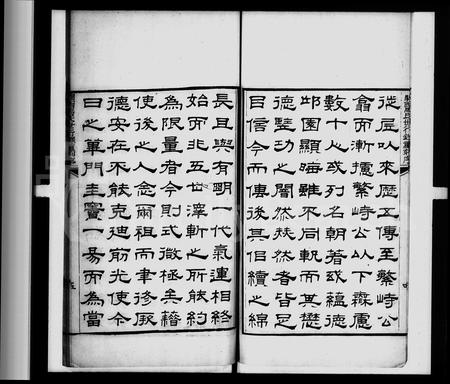 從辰以來歷五傳至繁峙公
而漸擴繁峙公以下
數十人或列名朝著或蘊德
邱園顯晦雖不同軌而其懋
德豎功之闇然赫然者皆足
㠯信今而傳後其侣續之綿
長且與有明一代氣運相終
始而非五世澤斬之所能約
為限量者今則式微極矣藉
使後之人念爾祖而聿修厥
德安在不能克迪前光使今
日之蓽門圭竇一易而為當